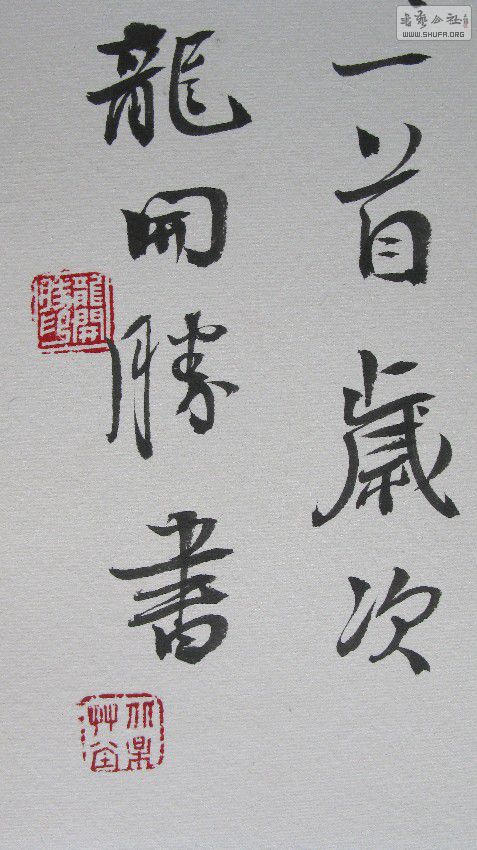 首歲次
龍開勝書
龍開勝印
書藝公社
WWW.SHUFA.ORG